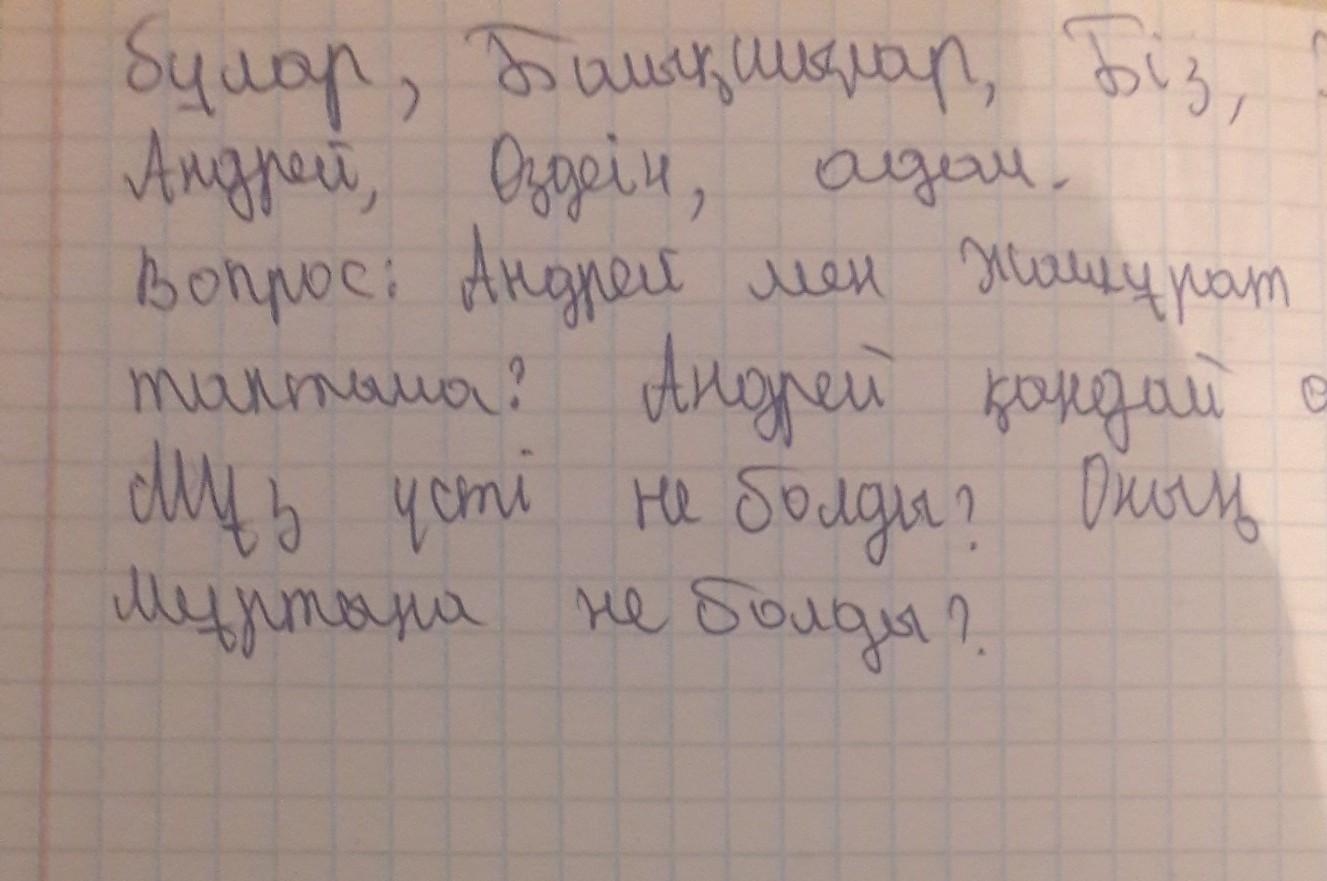 бұлар, Балықшылар, Біз,
Андрей, Өздеін, адам.
Вопрос: Андрей мен Жашұрат
таптыма? Андрей қандай
Мұз үсті не болды? Оның
Мұртына не болды?